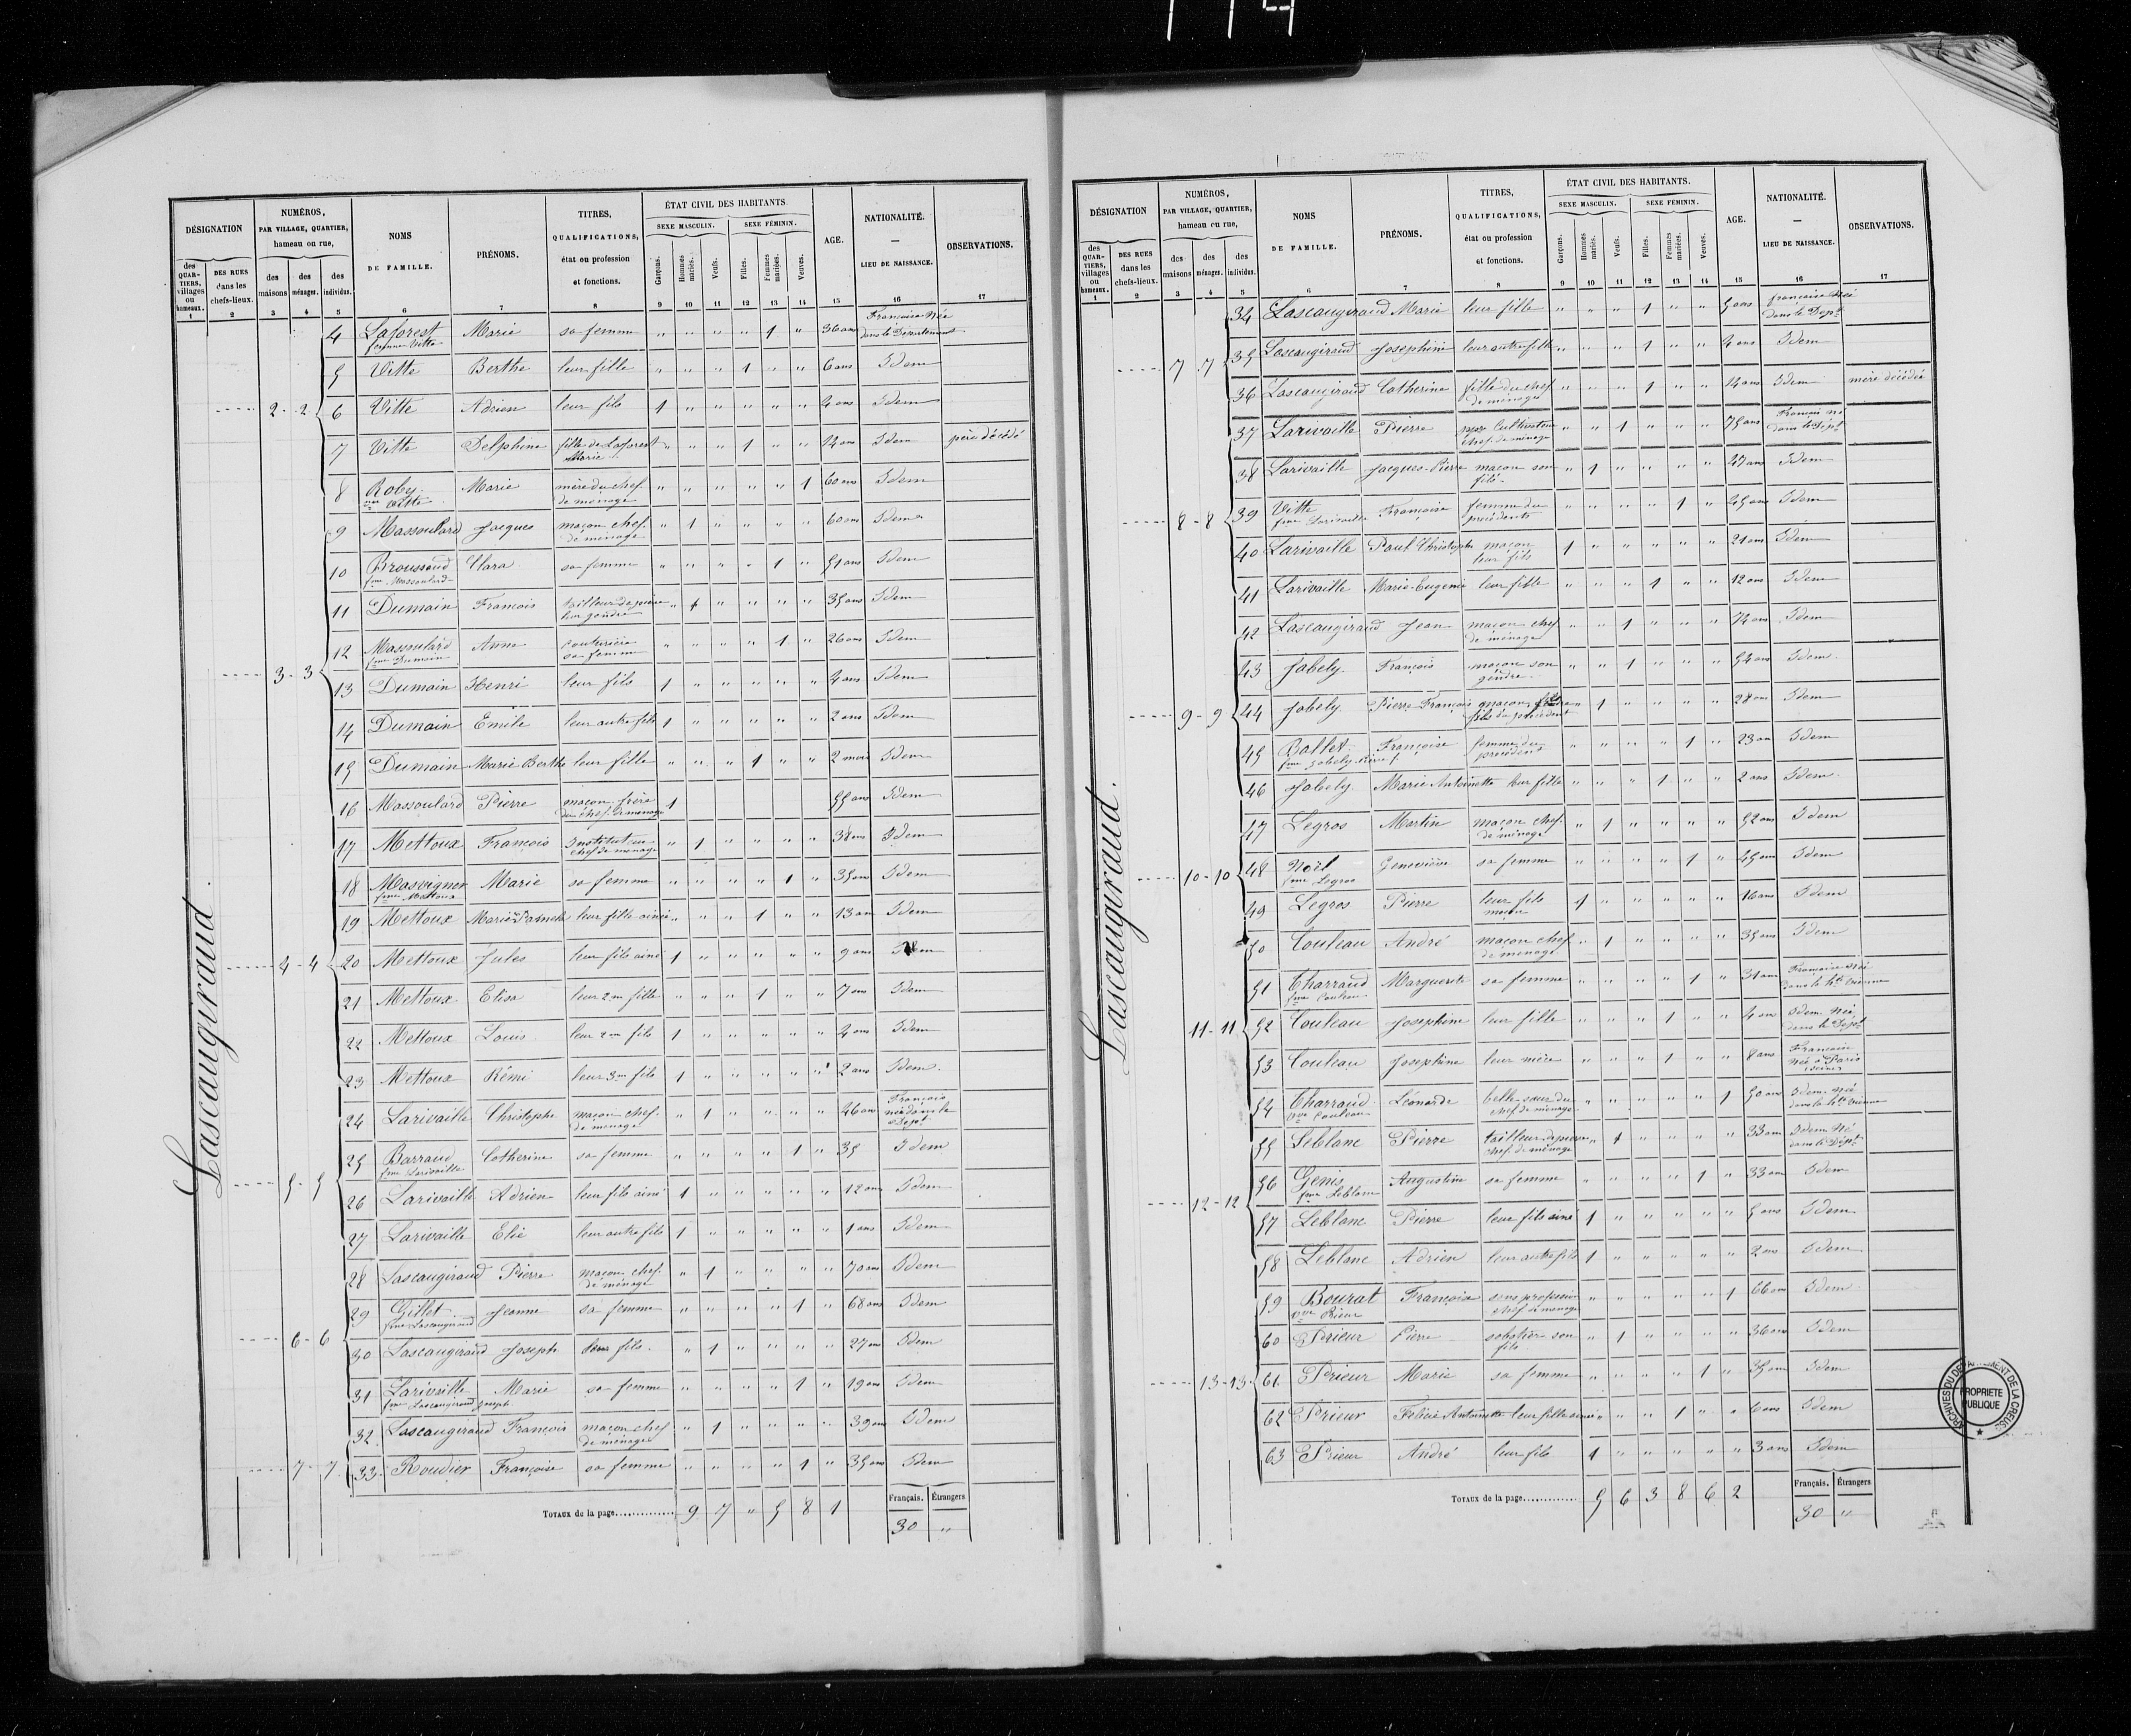 DÉSIGNATION
des QUARTIERS, villages ou hameaux.
DES RUES dans les chefs-lieux.
NUMÉROS, PAR VILLAGE, QUARTIER, hameau ou rue,
des maisons
des ménages.
des individus.
NOMS DE FAMILLE.
PRÉNOMS.
TITRES, QUALIFICATIONS, état ou profession et fonctions.
ÉTAT CIVIL DES HABITANTS.
SEXE MASCULIN.
SEXE FÉMININ.
Garçons. Hommes mariés. Veufs. Filles. Femmes mariées. Veuves.
AGE.
NATIONALITÉ. — LIEU DE NAISSANCE.
OBSERVATIONS.
1 2 3 4 5 6 7 8 9 10 11 12 13 14 15 16 17
Lascaugiraud
4 Laforest femme Vitte Marie sa femme " " " " 1 " 36 ans Française Née dans le Département
5 Vitte Berthe leur fille " " " 1 " " 6 ans Idem
2 - 2 6 Vitte Adrien leur fils 1 " " " " " 4 ans Idem
7 Vitte Delphine fille de Laforest Marie " " " 1 " " 14 ans Idem père décédé
8 Roby vve Vitte Marie mère du chef de ménage " " " " " 1 60 ans Idem
9 Massoulard Jacques maçon chef de ménage " 1 " " " " 60 ans Idem
10 Broussaud fme Massoulard Clara sa femme " " " " 1 " 51 ans Idem
11 Dumain François tailleur de pierre leur gendre " 1 " " " " 35 ans Idem
12 Massoulard fme Dumain Anne couturière sa femme " " " " 1 " 26 ans Idem
3 - 3 13 Dumain Henri leur fils 1 " " " " " 4 ans Idem
14 Dumain Emile leur autre fils 1 " " " " " 2 ans Idem
15 Dumain Marie Berthe leur fille " " " 1 " " 2 mois Idem
16 Massoulard Pierre maçon frère du chef de ménage 1 55 ans Idem
17 Mettoux François Instituteur chef de ménage " 1 " " " " 38 ans Idem
18 Masvigner fme Mettoux Marie sa femme " " " " 1 " 35 ans Idem
19 Mettoux Marie leur fille ainée " " " 1 " " 13 ans Idem
4 - 4 20 Mettoux Jules leur fils ainé 1 " " " " " 9 ans Idem
21 Mettoux Elisa leur 2me fille " " " 1 " " 7 ans Idem
22 Mettoux Louis leur 2me fils 1 " " " " " 4 ans Idem
23 Mettoux Rémi leur 3me fils 1 " " " " " 2 ans Idem
24 Larivaille Christophe maçon chef de ménage " 1 " " " " 46 ans Français né dans le Dépt
25 Barraud fme Larivaille Catherine sa femme " " " " 1 " 35 Idem
5 - 5 26 Larivaille Adrien leur fils ainé 1 " " " " " 12 ans Idem
27 Larivaille Elie leur autre fils 1 " " " " " 1 ans Idem
28 Lascaugiraud Pierre maçon chef de ménage " 1 " " " " 70 ans Idem
29 Gillet fme Lascaugiraud Jeanne sa femme " " " " 1 " 68 ans Idem
6 - 6 30 Lascaugiraud Joseph leur fils " 1 " " " " 27 ans Idem
31 Larivaille fme Lascaugiraud Joseph Marie sa femme " " " " 1 " 19 ans Idem
32 Lascaugiraud François maçon chef de ménage " 1 " " " " 39 ans Idem
7 - 7 33 Roudier Françoise sa femme " " " " 1 " 35 ans Idem
TOTAUX de la page 9 7 " 5 8 1
Français. Étrangers
30 "
DÉSIGNATION
des QUARTIERS, villages ou hameaux.
DES RUES dans les chefs-lieux.
NUMÉROS, PAR VILLAGE, QUARTIER, hameau ou rue,
des maisons
des ménages.
des individus.
NOMS DE FAMILLE.
PRÉNOMS.
TITRES, QUALIFICATIONS, état ou profession et fonctions.
ÉTAT CIVIL DES HABITANTS.
SEXE MASCULIN.
SEXE FÉMININ.
Garçons. Hommes mariés. Veufs. Filles. Femmes mariées. Veuves.
AGE.
NATIONALITÉ. — LIEU DE NAISSANCE.
OBSERVATIONS.
1 2 3 4 5 6 7 8 9 10 11 12 13 14 15 16 17
Lascaugiraud.
34 Lascaugiraud Marie leur fille " " " 1 " " 5 ans française Née dans le Dept
7 7 35 Lascaugiraud Joséphine leur autre fille " " " 1 " " 4 ans Idem
36 Lascaugiraud Catherine fille du chef de ménage " " " 1 " " 14 ans Idem mère décédée
37 Larivaille Pierre Cultivateur chef de ménage " " 1 " " " 75 ans Français né dans le Dépt
38 Larivaille Jacques-Pierre maçon son fils " 1 " " " " 47 ans Idem
8 - 8 39 Vitte fme Larivaille Françoise femme du précédent " " " " 1 " 45 ans Idem
40 Larivaille Paul Christophe maçon leur fils 1 " " " " " 21 ans Idem
41 Larivaille Marie-Eugénie leur fille " " " 1 " " 12 ans Idem
42 Lascaugiraud Jean maçon chef de ménage " " 1 " " " 74 ans Idem
43 Jabely François maçon son gendre " " 1 " " " 54 ans Idem
9 - 9 44 Jabely Pierre François maçon fils du précédent " 1 " " " " 28 ans Idem
45 Ballet fme Jabely Françoise femme du précédent " " " " 1 " 23 ans Idem
46 Jabely Marie Antoinette leur fille " " " 1 " " 2 ans Idem
47 Legros Martin maçon chef de ménage " 1 " " " " 52 ans Idem
10 - 10 48 Noël fme Legros Geneviève sa femme " " " " 1 " 45 ans Idem
49 Legros Pierre leur fils maçon 1 " " " " " 16 ans Idem
50 Couleau André maçon chef de ménage " 1 " " " " 35 ans Idem
51 Charraud fme Couleau Marguerite sa femme " " " " 1 " 31 ans Française Née dans la Hte Vienne
11 - 11 52 Couleau Joséphine leur fille " " " 1 " " 4 ans Idem Née dans le Dépt
53 Couleau Joséphine leur nièce " " " 1 " " 8 ans Française née à Paris Seine
54 Charraud vve Couleau Léonarde belle-sœur du chef de ménage " " " " " 1 50 ans Idem née dans la Hte Vienne
55 Leblanc Pierre tailleur de pierre chef de ménage " 1 " " " " 33 ans Idem Né dans le Dépt
56 Genis fme Leblanc Augustine sa femme " " " " 1 " 33 ans Idem
12 - 12 57 Leblanc Pierre leur fils ainé 1 " " " " " 5 ans Idem
58 Leblanc Adrien leur autre fils 1 " " " " " 2 ans Idem
59 Bourat vve Prieur Françoise sans profession chef de ménage " " " " " 1 66 ans Idem
60 Prieur Pierre sabotier son fils " 1 " " " " 36 ans Idem
13 - 13 61 Prieur Marie sa femme " " " " 1 " 35 ans Idem
62 Prieur Félicie Antoinette leur fille ainée " " " 1 " " 6 ans Idem
63 Prieur André leur fils 1 " " " " " 3 ans Idem
TOTAUX de la page 5 6 3 8 6 2
Français. Étrangers
30 "
ARCHIVES DU DEPARTEMENT DE LA CREUSE
PROPRIETE PUBLIQUE